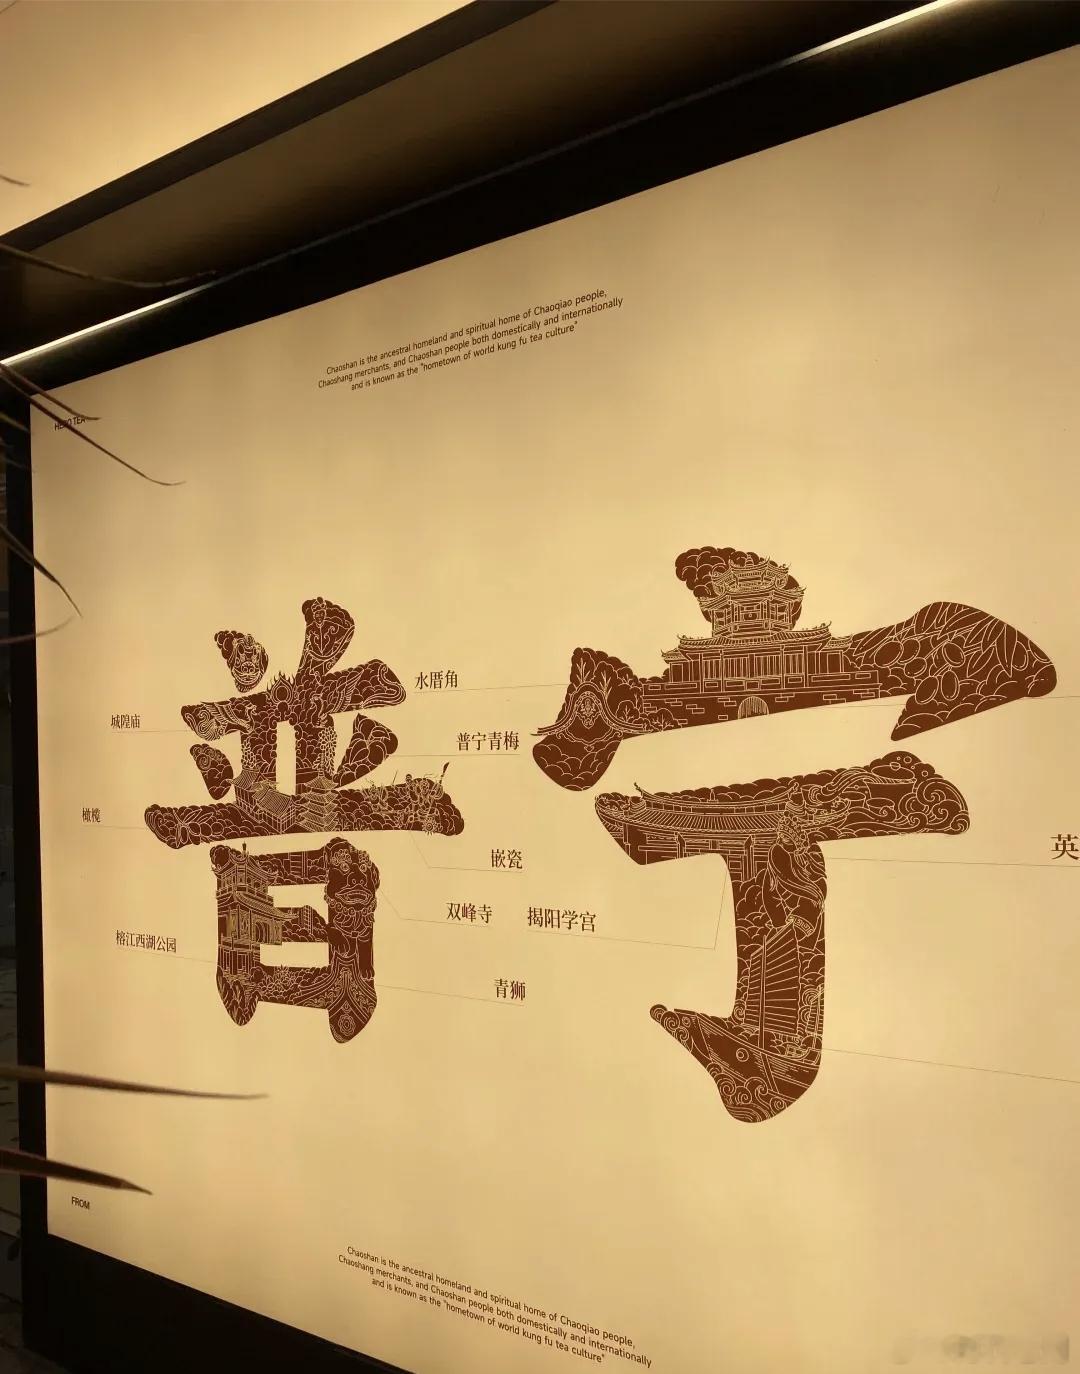 Chaoshan is the ancestral homeland and spiritual home of Chaoqiao people,
Chaoshang merchants, and Chaoshan people both domestically and internationally
and is known as the "hometown of world kung fu tea culture"
TEA
普宁
水厝角
城隍庙
普宁青梅
橄榄
嵌瓷
双峰寺
揭阳学宫
英
榕江西湖公园
青狮
FROM
Chaoshan is the ancestral homeland and spiritual home of Chaoqiao people,
Chaoshang merchants, and Chaoshan people both domestically and internationally
and is known as the "hometown of world kung fu tea culture"